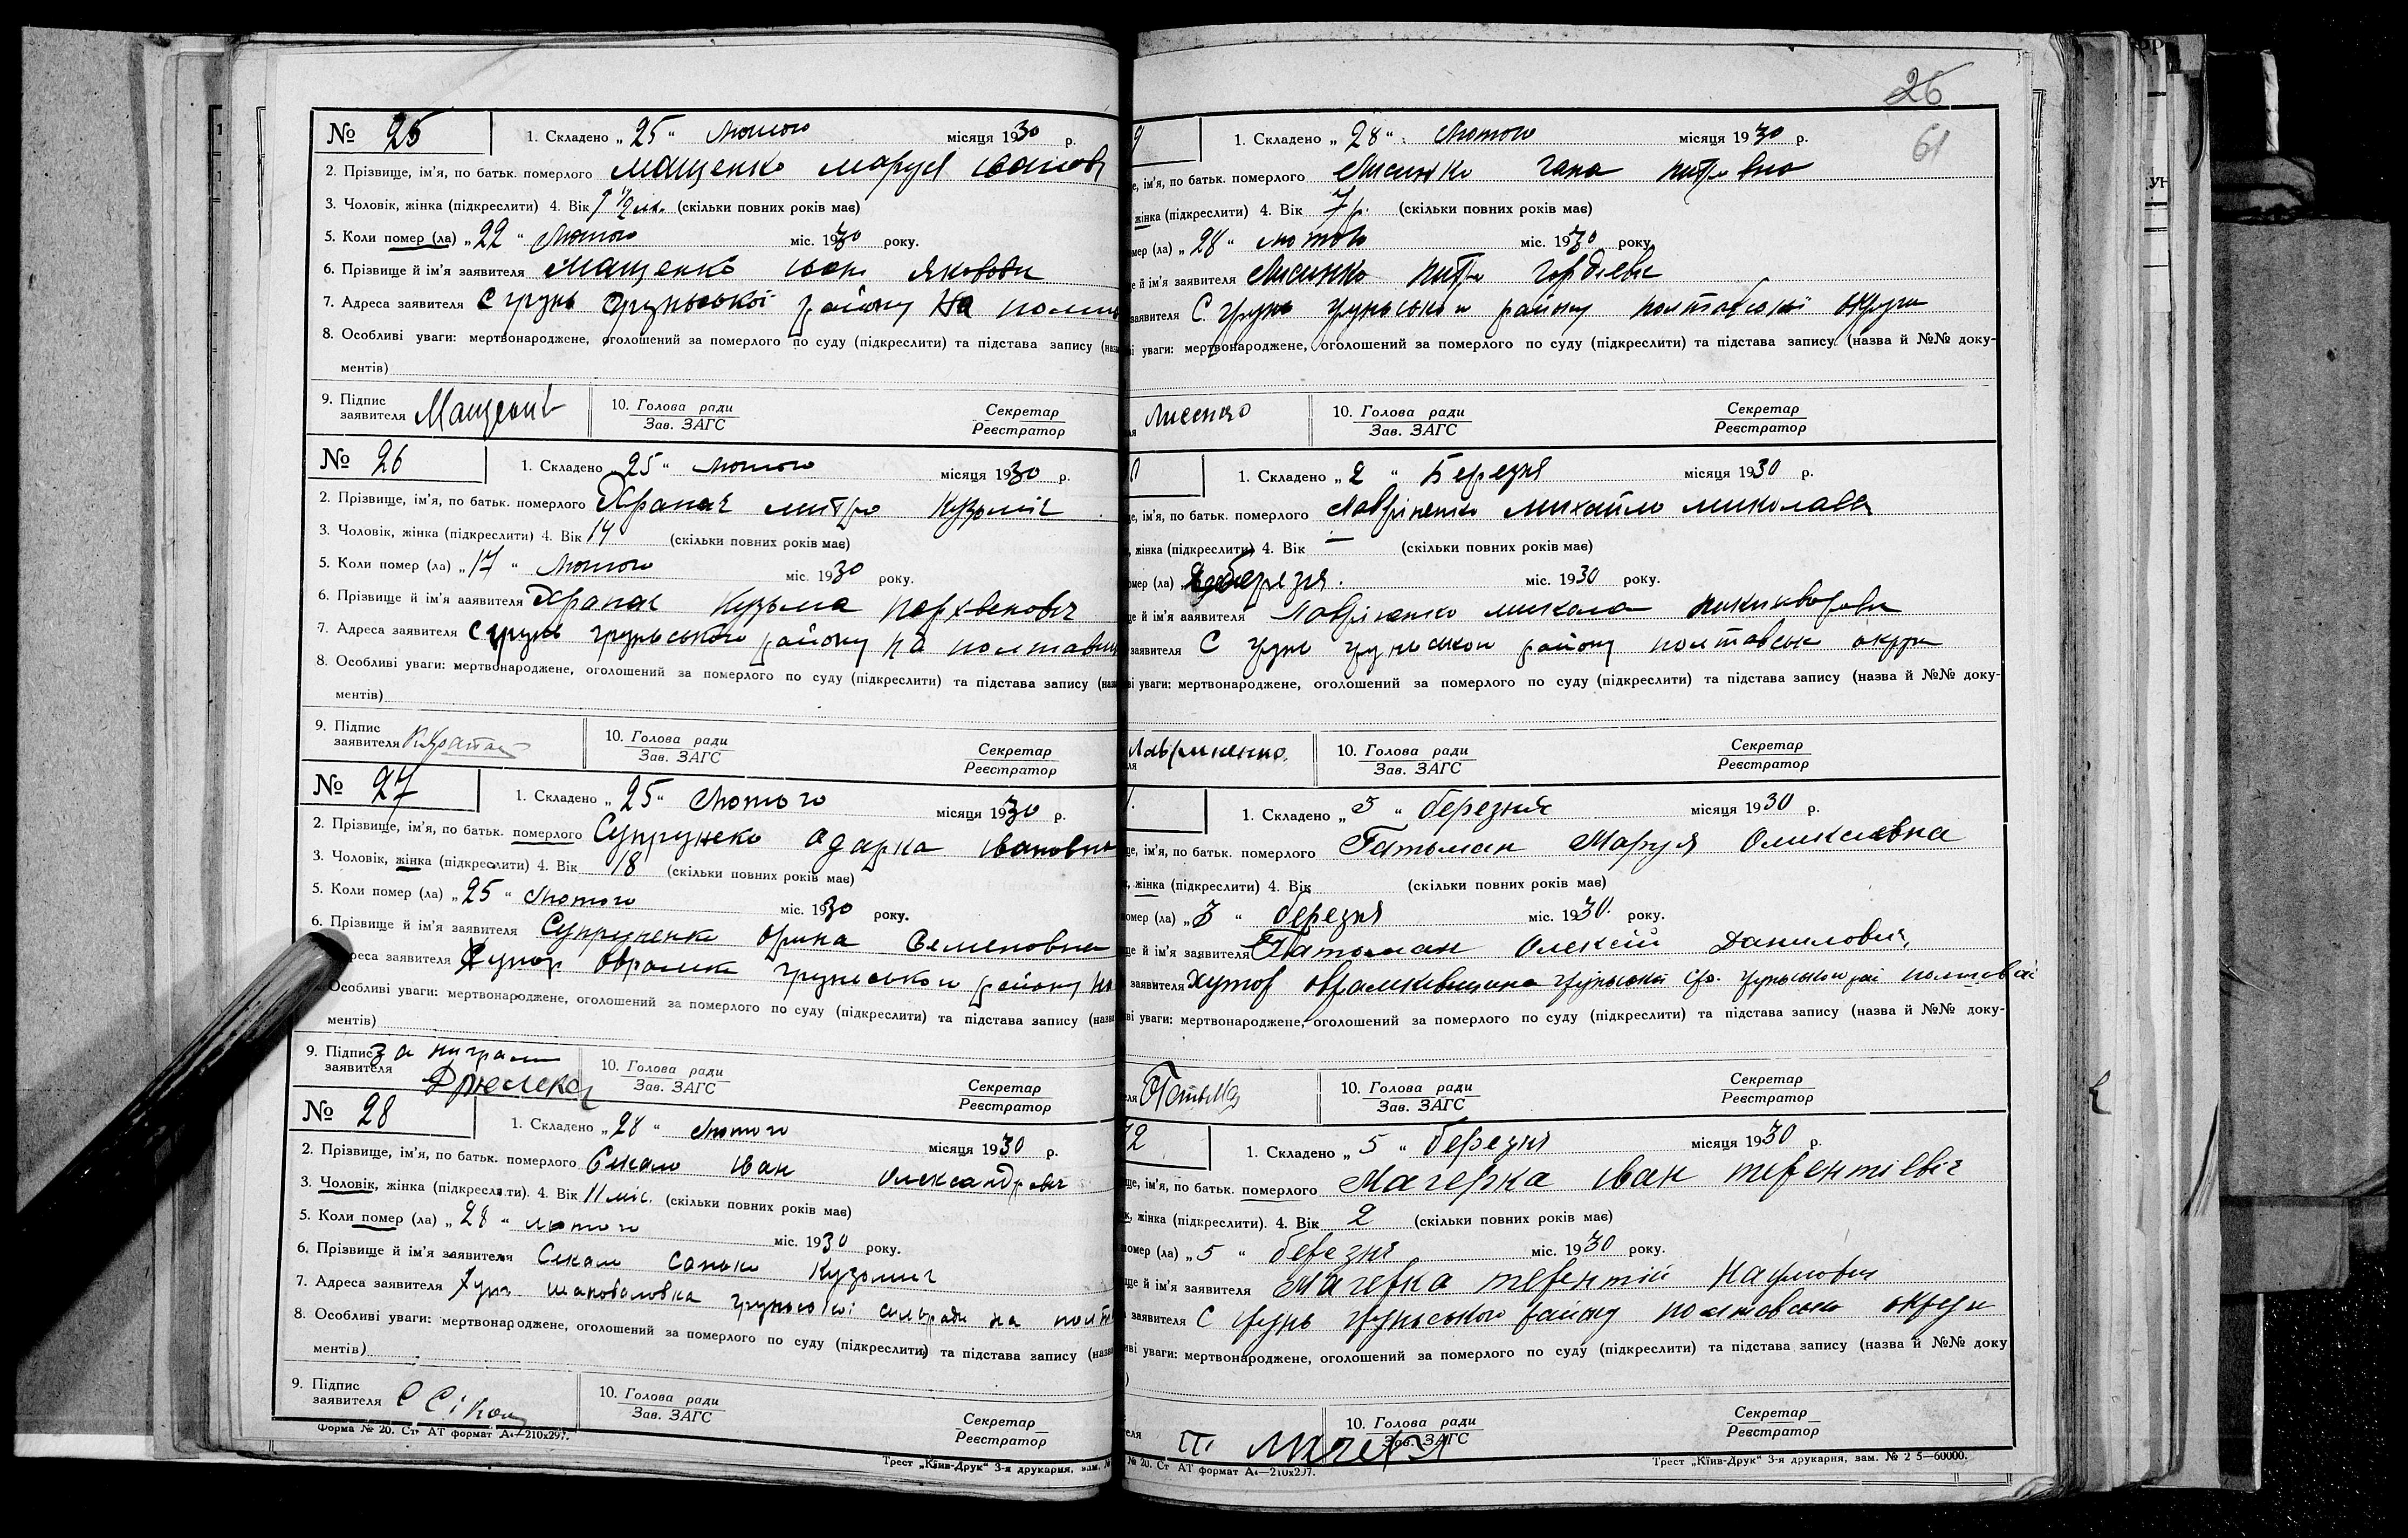 № 25 1. Складено „ 25 “ Лютого місяця 1930 р.
2. Прізвище, ім'я, по батьк. померлого Мащенко Маруся Іванов
3. Чоловік, жінка (підкреслити) 4. Вік (скільки повних років має)
5. Коли помер (ла) „ 22 “ Лютого міс. 1930 року.
6. Прізвище й ім'я заявителя Мащенко Іван Якович
7. Адреса заявителя С грунь грунської району на полтав
8. Особливі уваги: мертвонароджене, оголошений за померлого по суду (підкреслити) та підстава запису (наз
ментів)
9. Підпис заявителя Мащенко 10. Голова ради Зав. ЗАГС Секретар Реєстратор
№ 26 1. Складено „ 25 “ Лютого місяця 1930 р.
2. Прізвище, ім'я, по батьк. померлого Храпач митро Кузьміч
3. Чоловік, жінка (підкреслити) 4. Вік 14 (скільки повних років має)
5. Коли помер (ла) „ 17 “ Лютого міс. 1930 року.
6. Прізвище й ім'я заявителя Храпач Кузьма Пархвенович
7. Адреса заявителя С грунь грунського району на полтавщ
8. Особливі уваги: мертвонароджене, оголошений за померлого по суду (підкреслити) та підстава запису (наз
ментів)
9. Підпис заявителя 10. Голова ради Зав. ЗАГС Секретар Реєстратор
№ 27 1. Складено „ 25 “ Лютого місяця 1930 р.
2. Прізвище, ім'я, по батьк. померлого Супрунеко Одарка івановна
3. Чоловік, жінка (підкреслити) 4. Вік 18 (скільки повних років має)
5. Коли помер (ла) „ 25 “ Лютого міс. 1930 року.
6. Прізвище й ім'я заявителя Супруненк Орина Семеновна
реса заявителя Хутор грунського району на
Особливі уваги: мертвонароджене, оголошений за померлого по суду (підкреслити) та підстава запису (назв
ментів)
9. Підпис заявителя за 10. Голова ради Зав. ЗАГС Секретар Реєстратор
№ 28 1. Складено „ 28 “ Лютого місяця 1930 р.
2. Прізвище, ім'я, по батьк. померлого Іван Олександрович
3. Чоловік, жінка (підкреслити). 4. Вік 11 міс. (скільки повних років має)
5. Коли помер (ла) „ 28 “ лютого міс. 1930 року.
6. Прізвище й ім'я заявителя Санько Кузьмич
7. Адреса заявителя Хут Шаповаловка грунської сільради на полт
8. Особливі уваги: мертвонароджене, оголошений за померлого по суду (підкреслити) та підстава запису (назв
ментів)
9. Підпис заявителя 10. Голова ради Зав. ЗАГС Секретар Реєстратор
Форма № 20. Ст АТ формат А4—210х297.
Трест „Київ-Друк“ 3-я друкарня, зам. №
26
61
9 1. Складено „ 28 “ Лютого місяця 1930 р.
е, ім'я, по батьк. померлого Лисинко Гана питровна
жінка (підкреслити) 4. Вік 7 р. (скільки повних років має)
мер (ла) „ 28 “ лютого міс. 1930 року
е й ім'я заявителя Лисинко питро Гордіевич
заявителя С грунь грунського району полтавської округи
ві уваги: мертвонароджене, оголошений за померлого по суду (підкреслити) та підстава запису. (назва й №№ доку-
Лисенко 10. Голова ради Зав. ЗАГС Секретар Реєстратор
1. Складено „ 2 “ Березня місяця 1930 р.
е, ім'я, по батьк. померлого Лавріненко Михайло миколаев
, жінка (підкреслити) 4. Вік — (скільки повних років має)
омер (ла) березня. міс. 1930 року.
е й ім'я заявителя Лавріненко микола
заявителя С грунь грунського району полтавськ округи
ві уваги: мертвонароджене, оголошений за померлого по суду (підкреслити) та підстава запису (назва й №№ доку-
Лавриненко. 10. Голова ради Зав. ЗАГС Секретар Реєстратор
1. Складено „ 3 “ березня місяця 1930 р.
е, ім'я, по батьк. померлого Гатьман Маруся Олексіевна
, жінка (підкреслити) 4. Вік (скільки повних років має)
омер (ла) „ 3 “ березня міс. 1930. року.
е й ім'я заявителя Гатьман Олексій Данилович
заявителя Хутор грунської с/р. грунського рай полтавсь
ві уваги: мертвонароджене, оголошений за померлого по суду (підкреслити) та підстава запису (назва й №№ доку-
Гатьма 10. Голова ради Зав. ЗАГС Секретар Реєстратор
2 1. Складено „ 5 “ березня місяця 1930 р.
е, ім'я, по батьк. померлого Мачерка Іван терентіевіч
, жінка (підкреслити). 4. Вік 2 (скільки повних років має)
омер (ла) „ 5 “ березня міс. 1930 року.
е й ім'я заявителя Мачерка терентій Наумович
заявителя С грунь грунського району полтавсько округи
ві уваги: мертвонароджене, оголошений за померлого по суду (підкреслити) та підстава запису (назва й №№ доку
10. Голова ради Зав. ЗАГС Секретар Реєстратор
№ 20. Ст АТ формат А4—210х297.
Трест „Київ-Друк“ 3-я друкарня, зам. № 2 5—60000.